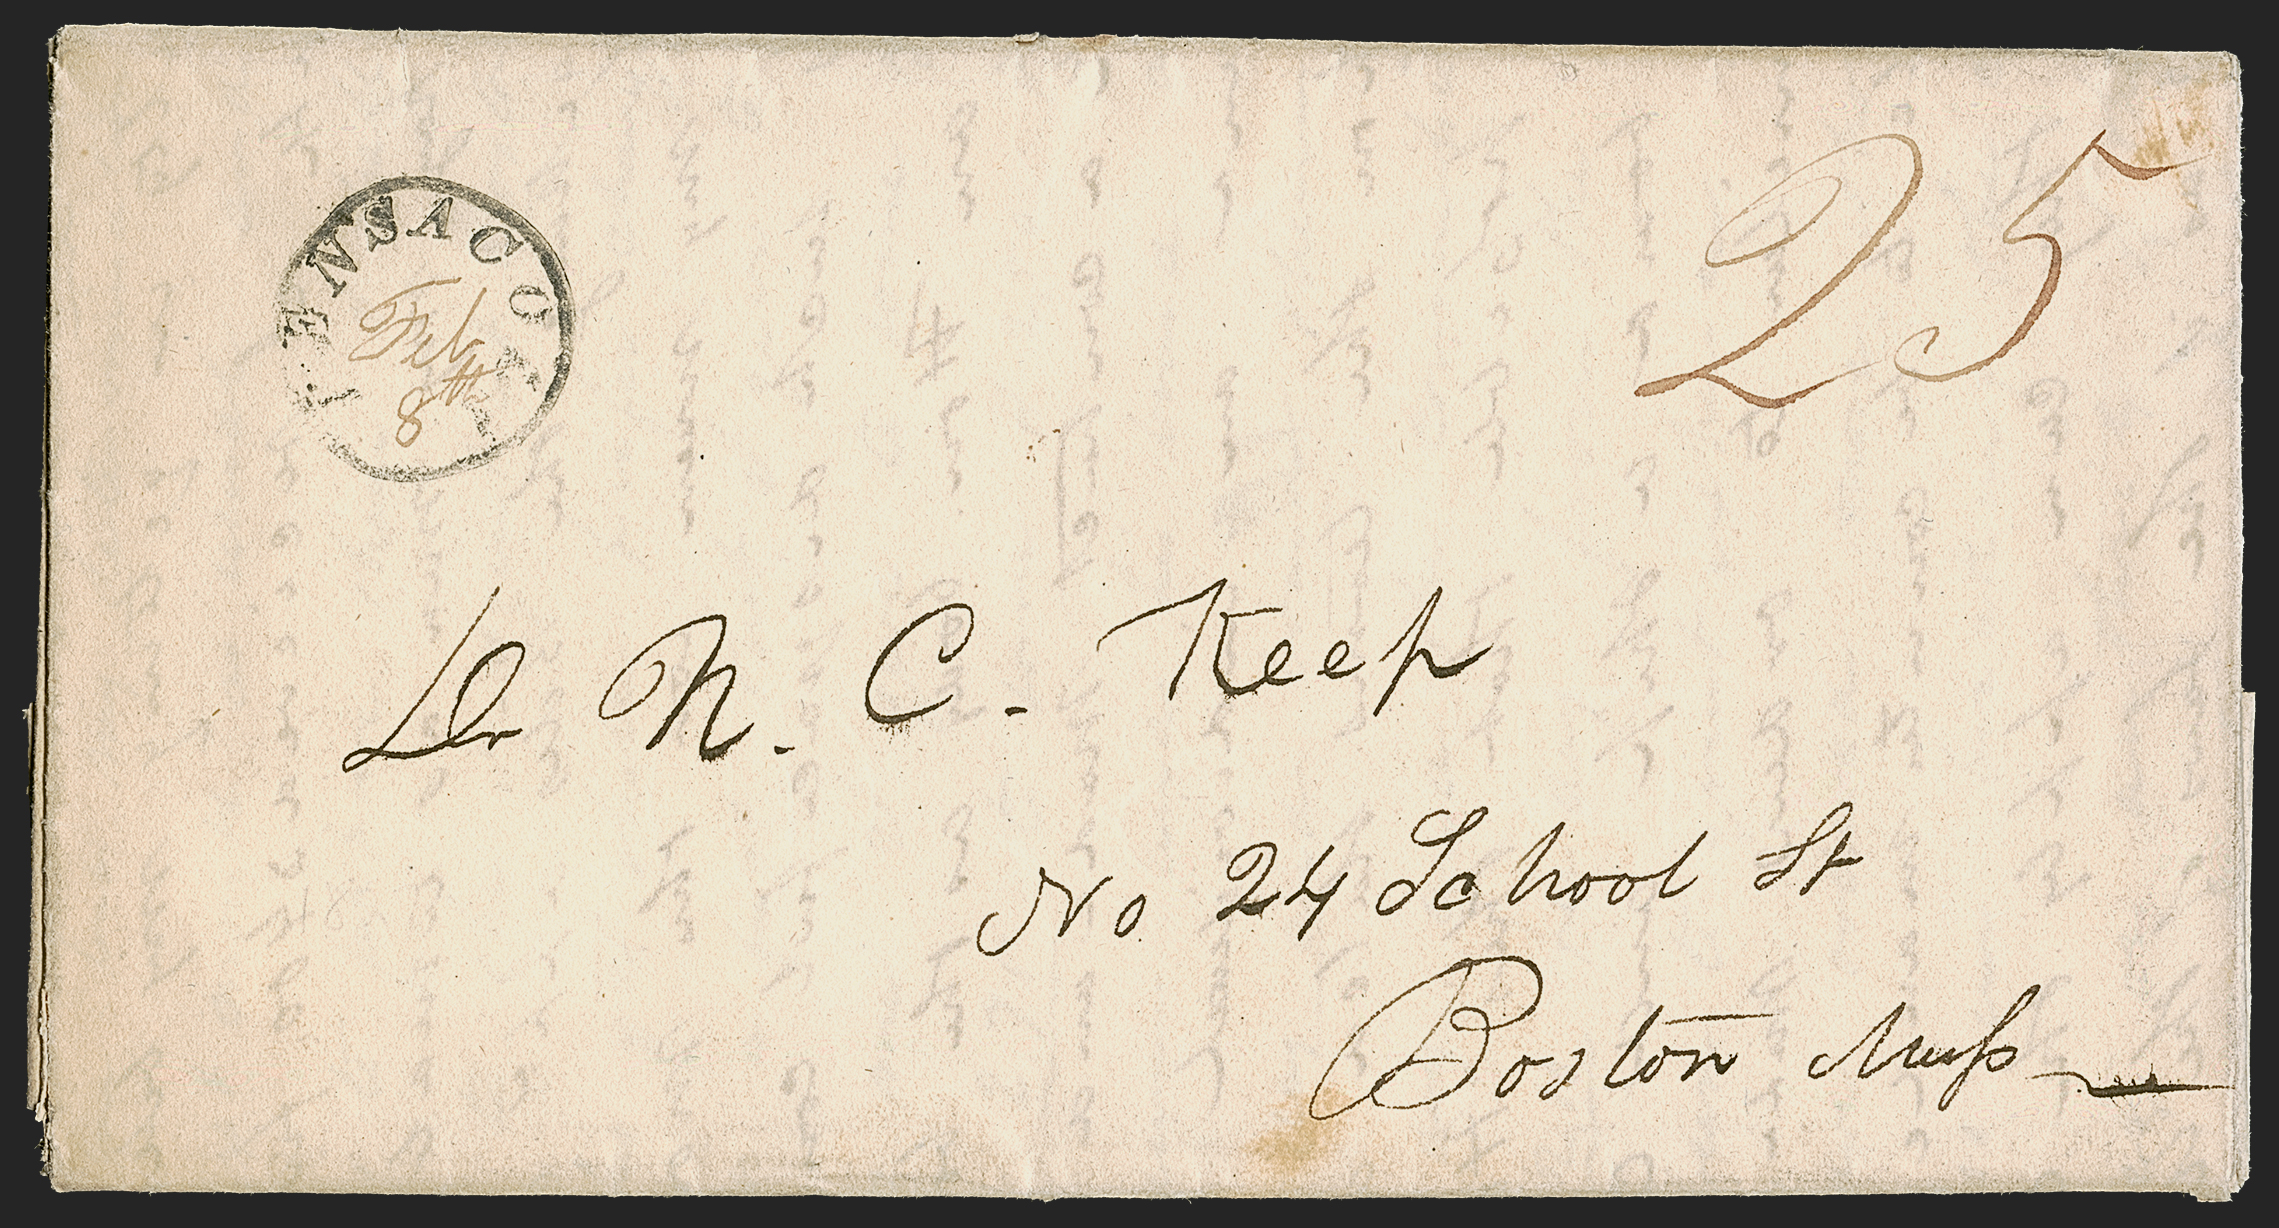 ENSACO
Feb
8th
25
Dr N. C. Keep
No 24 School St
Boston Mass